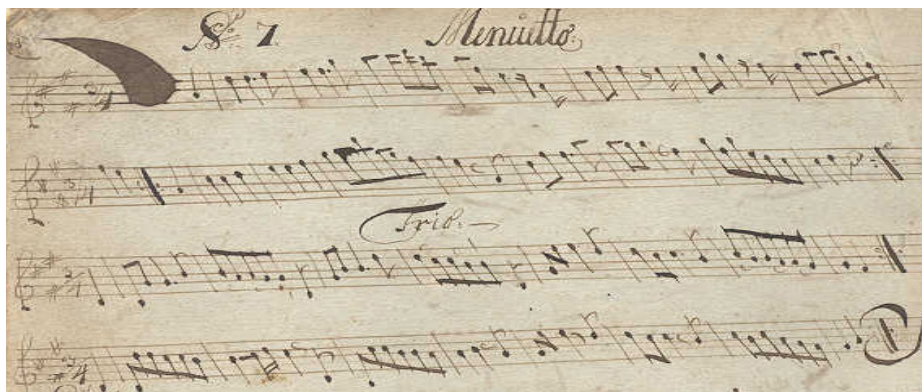 No. 7. Menuetto
Trio.